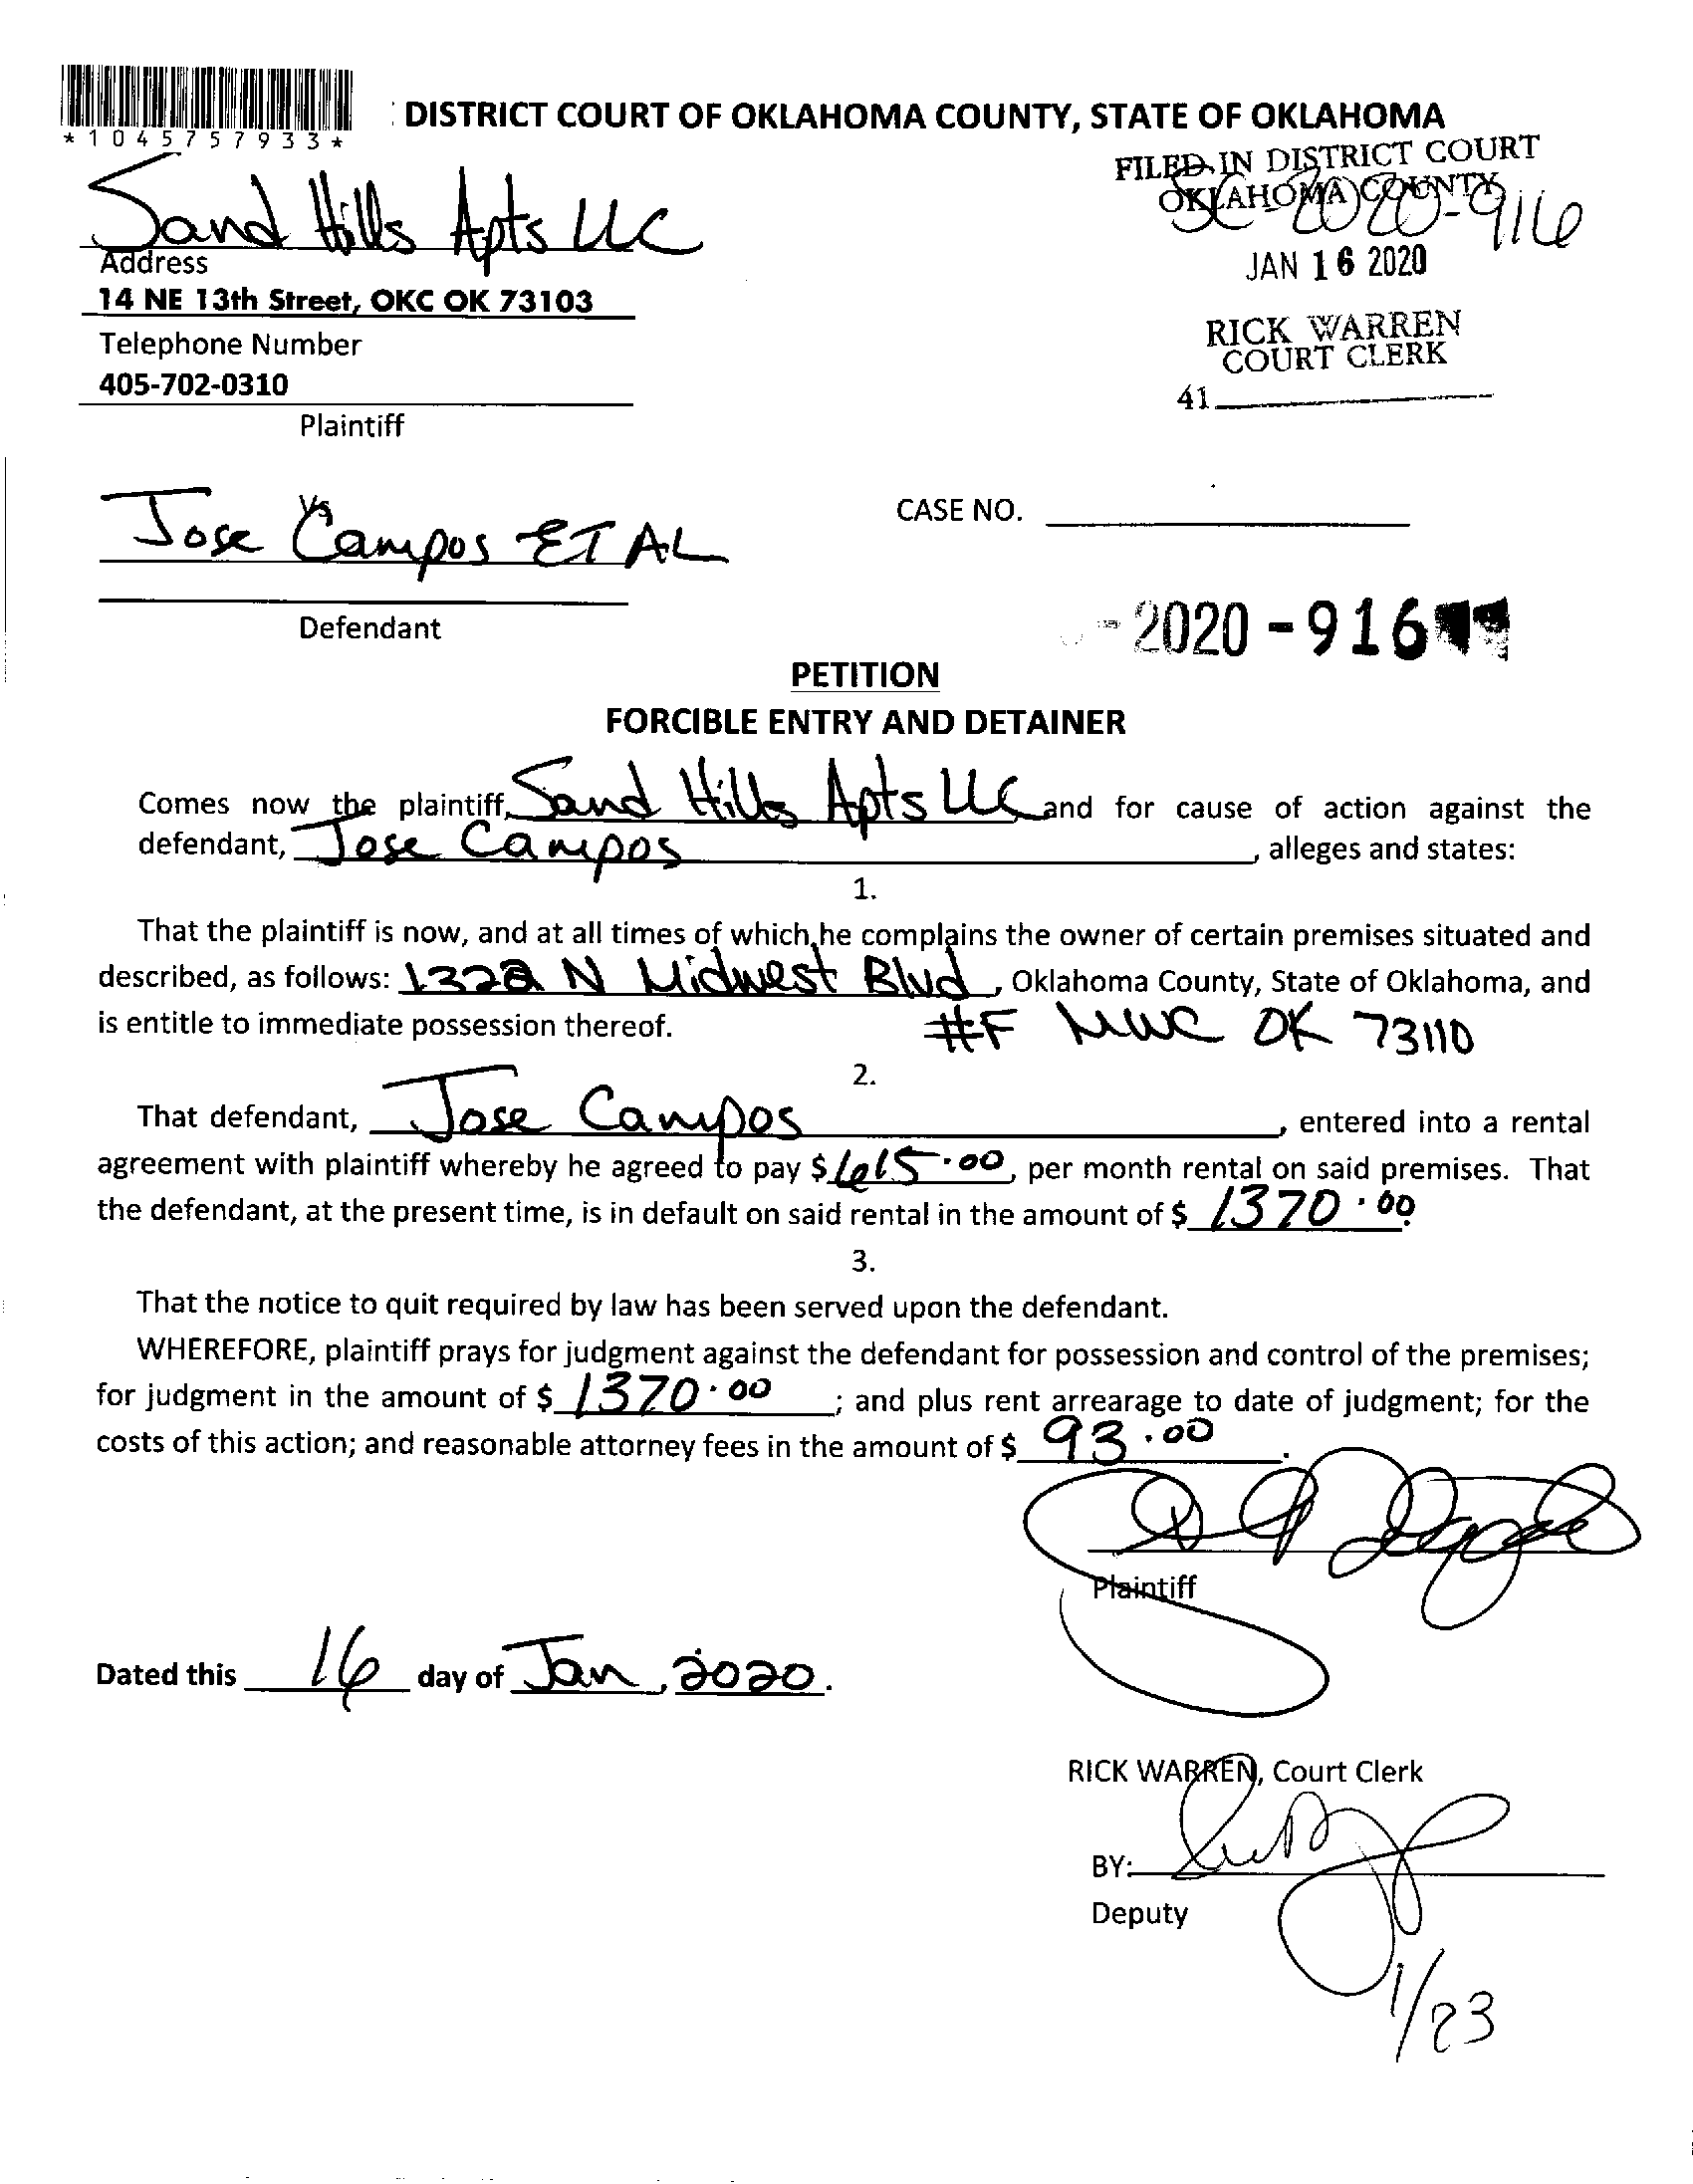 *1045757933*
: DISTRICT COURT OF OKLAHOMA COUNTY, STATE OF OKLAHOMA
FILED IN DISTRICT COURT
OKLAHOMA COUNTY
SC-2020-916
JAN 16 2020
RICK WARREN
COURT CLERK
41
Sand Hills Apts LLC
Address
14 NE 13th Street, OKC OK 73103
Telephone Number
405-702-0310
Plaintiff
Vs
Jose Campos ET AL
CASE NO.
Defendant
-2020-916
PETITION
FORCIBLE ENTRY AND DETAINER
Comes now the plaintiff, Sand Hills Apts LLC, and for cause of action against the
defendant, Jose Campos, alleges and states:
1.
That the plaintiff is now, and at all times of which he complains the owner of certain premises situated and
described, as follows: 1322 N Midwest Blvd, Oklahoma County, State of Oklahoma, and
is entitle to immediate possession thereof. #F MWC OK 73110
2.
That defendant, Jose Campos, entered into a rental
agreement with plaintiff whereby he agreed to pay $615.00, per month rental on said premises. That
the defendant, at the present time, is in default on said rental in the amount of $ 1370.00.
3.
That the notice to quit required by law has been served upon the defendant.
WHEREFORE, plaintiff prays for judgment against the defendant for possession and control of the premises;
for judgment in the amount of $ 1370.00; and plus rent arrearage to date of judgment; for the
costs of this action; and reasonable attorney fees in the amount of $ 93.00.
Plaintiff
Dated this 16 day of Jan, 2020.
RICK WARREN, Court Clerk
BY:
Deputy
1/23